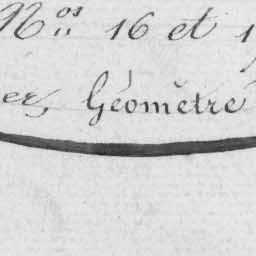 Nos 16 et 1
er, Géomètre